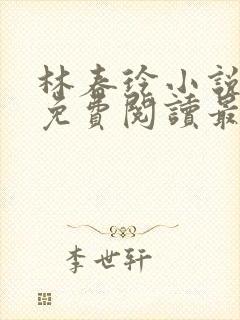 林春玲小說
免費閱讀最
李世轩